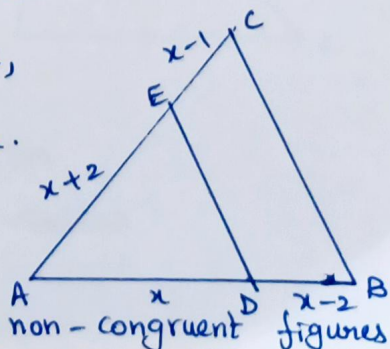 C
x-1
,
E
.
x+2
A x D x-2 B
non-congruent figures